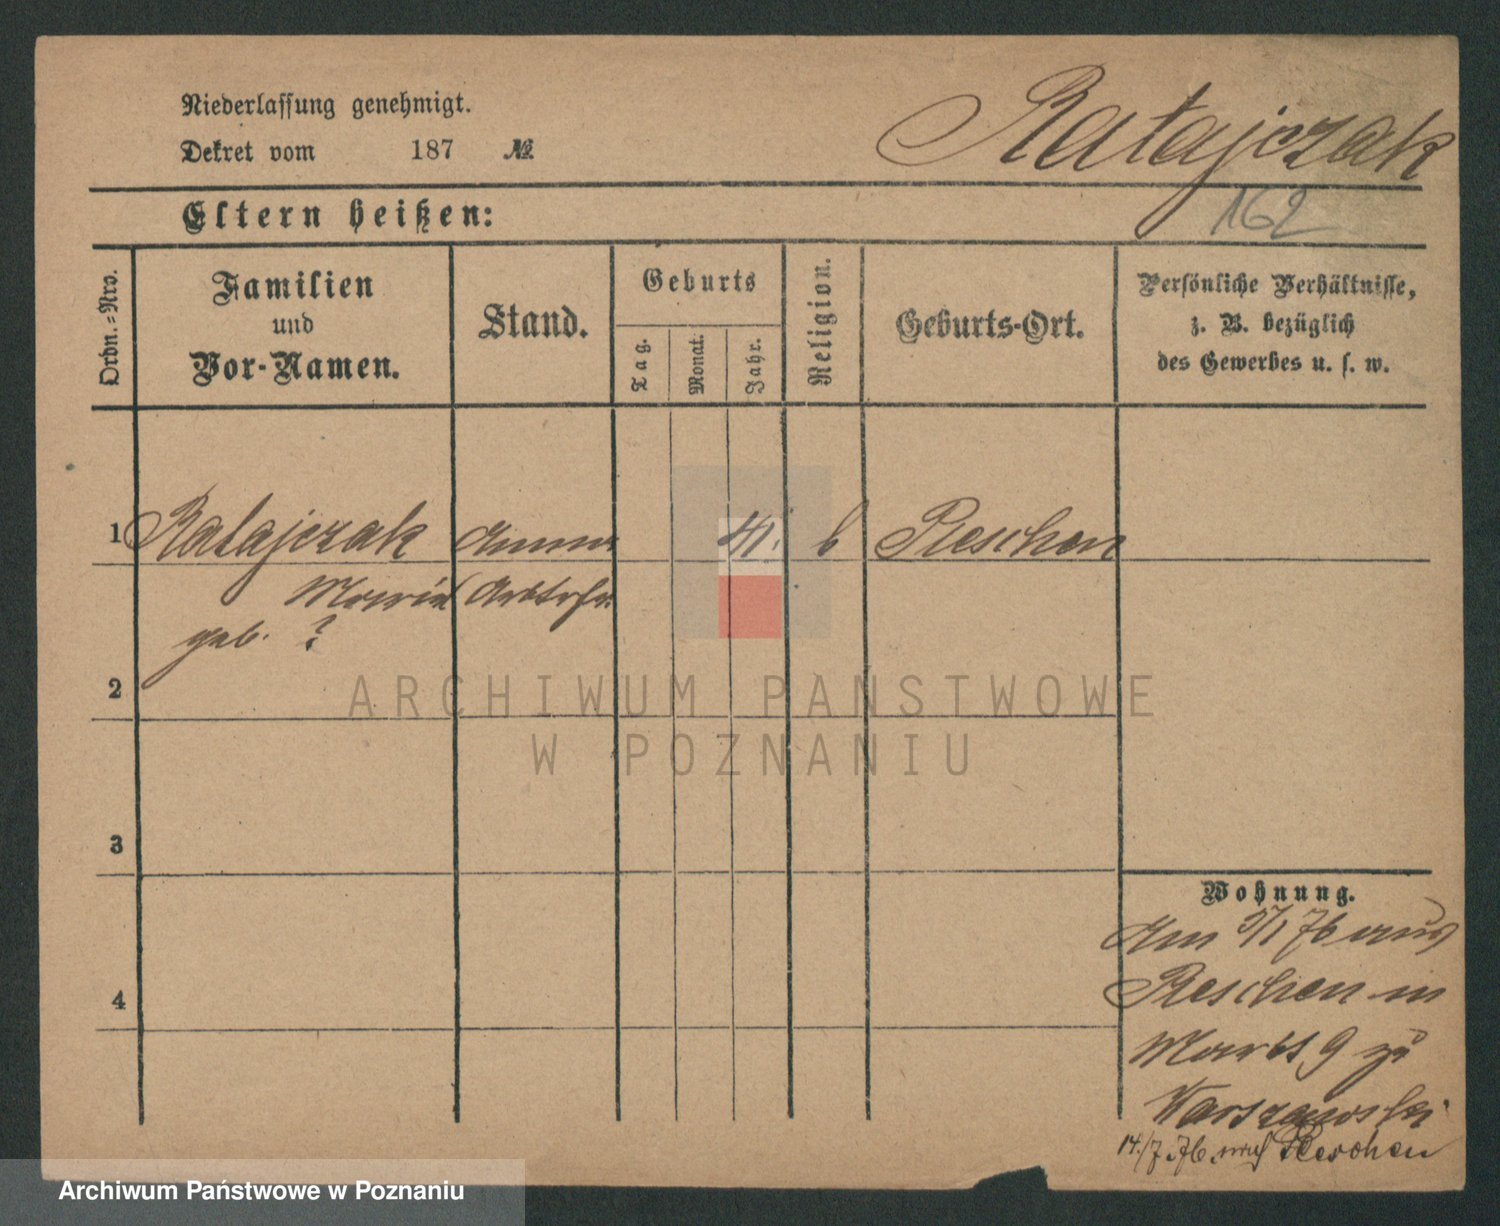 Niederlassung genehmigt.
Dekret vom 187 №
Ratajczak
162
Eltern heißen:
Ordn.=Nro.
Familien
und
Vor-Namen.
Stand.
Geburts
Tag.
Monat.
Jahr.
Religion.
Geburts-Ort.
Persönliche Verhältnisse,
z. B. bezüglich
des Gewerbes u. s. w.
1 Ratajczak 41. Pleschen
geb. ?
2
3
4
Wohnung.
Am 5/1 76 aus
Pleschen in
Markt 9 zu
Warszawski
14./7.76 nach Pleschen
ARCHIWUM PAŃSTWOWE
W POZNANIU
Archiwum Państwowe w Poznaniu